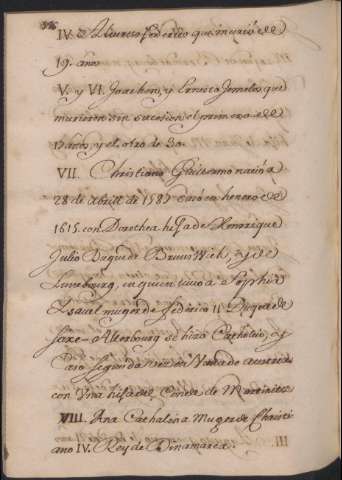 IV. Alberto federico que murió de
19. años
V. y VI. Joachon, y Ernesto Jemelos que
murieron sin sucesion el primero de
años, y el otro de 30.
VII. Christiano Guillermo nació a
28 de Abril de 1587 casó en henero de
1615 con Dorothea hija de Henrrique
Julio Duque de Brunswich, y de
Luneburg, en quien tuvo a Sophia
Isavel muger de federico II Duque de
Saxe-Altembourg se hizo Catholico, y
Caso segunda vez en
con Una hija del Conde de Martinitz
VIII. Ana Cathalina Muger de Christi
ano IV. Rey de Dinamarca.
III